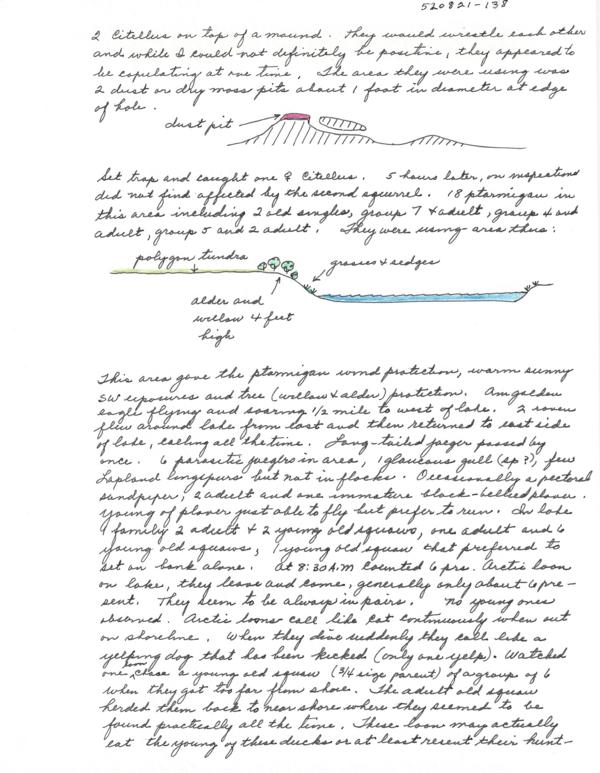 520821-138
2 Citellus on top of a mound. They would wrestle each other
and while I could not definitely be positive, they appeared to
be copulating at one time. The area they were using was
2 dust or dry moss pits about 1 foot in diameter at edge
of hole.
dust pit
Set trap and caught one ♀ Citellus. 5 hours later, on inspection
did not find affected by the second squirrel. 18 ptarmigan in
this area including 2 old singles, group 7 + adult, group 4 and
adult, group 5 and 2 adult. They were using area thus:
polygon tundra
grasses & sedges
alder and
willow 4 feet
high
This area gave the ptarmigan wind protection, warm sunny
SW exposures and tree (willow & alder) protection. Am golden
eagle flying and soaring 1/2 mile to west of lake. 2 raven
flew around lake from east and then returned to east side
of lake, calling all the time. Long-tailed jaeger passed by
once. 6 parasitic jaegers in area, 1 glaucous gull (sp?), few
Lapland longspurs but not in flocks. Ocassionally a pectoral
sandpiper, 2 adult and one immature black-bellied plover.
Young of plover just able to fly but prefer to run. In lake
1 family 2 adult + 2 young old squaws, one adult and 6
young old squaws, 1 young old squaw that preferred to
set on bank alone. At 8:30 A.M counted 6 prs. Arctic loon
on lake, they leave and come, generally only about 6 pre-
sent. They seem to be always in pairs. No young ones
observed. Arctic loons call like cat continuously when out
on shoreline. When they dive suddenly they call like a
yelping dog that has been kicked (only one yelp). Watched
one loon chase a young old squaw (3/4 size parent) of a group of 6
when they got too far from shore. The adult old squaw
herded them back to near shore where they seemed to be
found practically all the time. These loon may actually
eat the young of these ducks or at least resent their hunt-